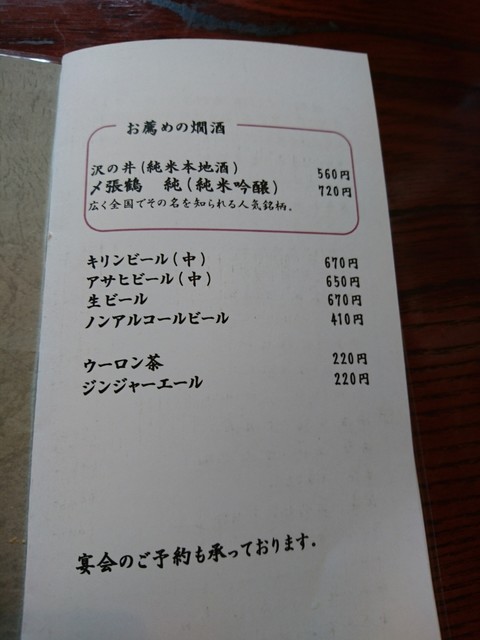 お薦めの燗酒
沢の井(純米本地酒) 560円
〆張鶴 純(純米吟醸) 720円
広く全国でその名を知られる人気銘柄。
キリンビール(中) 670円
アサヒビール(中) 650円
生ビール 670円
ノンアルコールビール 410円
ウーロン茶 220円
ジンジャーエール 220円
宴会のご予約も承っております.